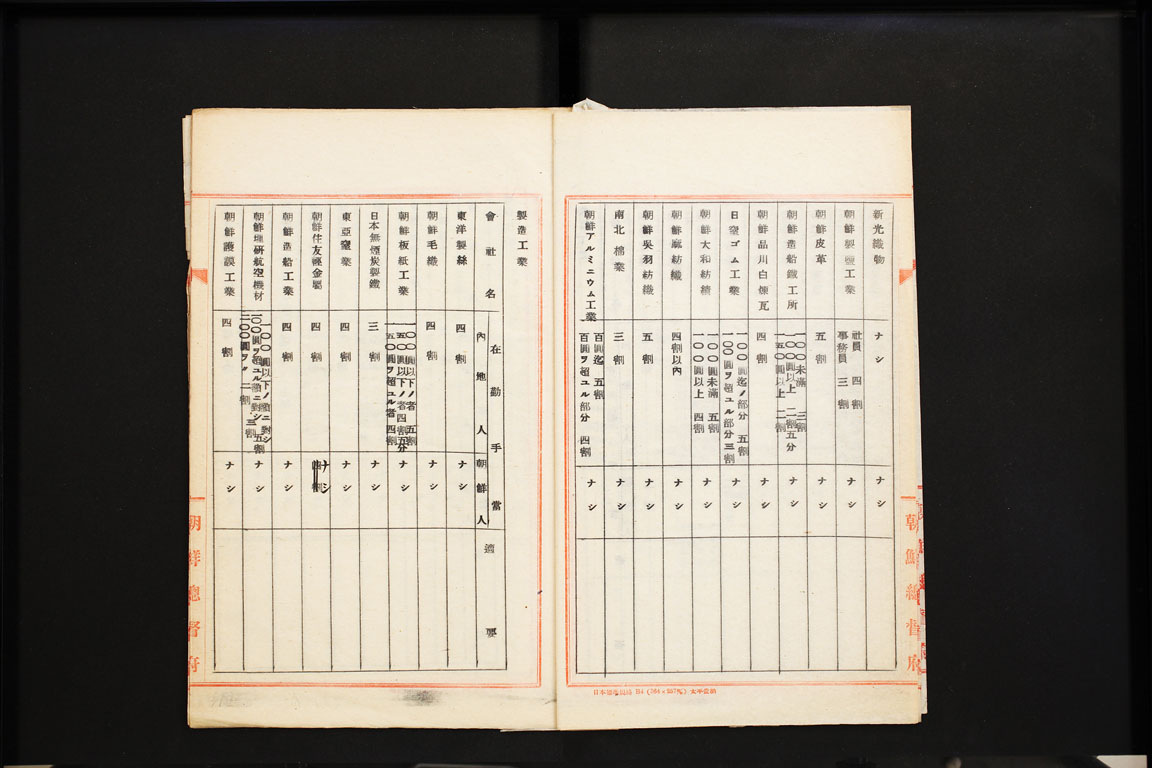 新光織物 ナシ ナシ
朝鮮製鹽工業 社員 四割 事務員 三割 ナシ
朝鮮皮革 五割 ナシ
朝鮮造船鐵工所 一〇〇未滿 三割 一〇〇圓以上 二割五分 一五〇圓以上 二割 ナシ
朝鮮品川白煉瓦 四割 ナシ
日窒ゴム工業 一〇〇圓迄ノ部分 五割 一〇〇圓ヲ超ユル部分 三割 ナシ
朝鮮大和紡績 一〇〇圓未滿 五割 一〇〇圓以上 四割 ナシ
朝鮮麻紡織 四割以內 ナシ
朝鮮吳羽紡織 五割 ナシ
南北棉業 三割 ナシ
朝鮮アルミニウム工業 百圓迄 五割 百圓ヲ超ユル部分 四割 ナシ
朝鮮總督府
B4 (364×257粍)
製造工業
會社名 在勤手當 內地人 朝鮮人 適要
東洋製絲 四割 ナシ
朝鮮毛織 四割 ナシ
朝鮮板紙工業 一〇〇圓以下ノ者 五割 一五〇圓以下ノ者 四割五分 一五〇圓ヲ超ユル者 四割 ナシ
日本無煙炭製鐵 三割 ナシ
東亞窯業 四割 ナシ
朝鮮住友輕金屬 四割 ナシ
朝鮮造船工業 四割 ナシ
朝鮮理硏航空機材 一〇〇圓以下ノ額ニ對シ 五割 一〇〇圓ヲ超ユル額ニ對シ 三割 二〇〇圓ヲ〃 二割 ナシ
朝鮮護謨工業 四割 ナシ
朝鮮總督府